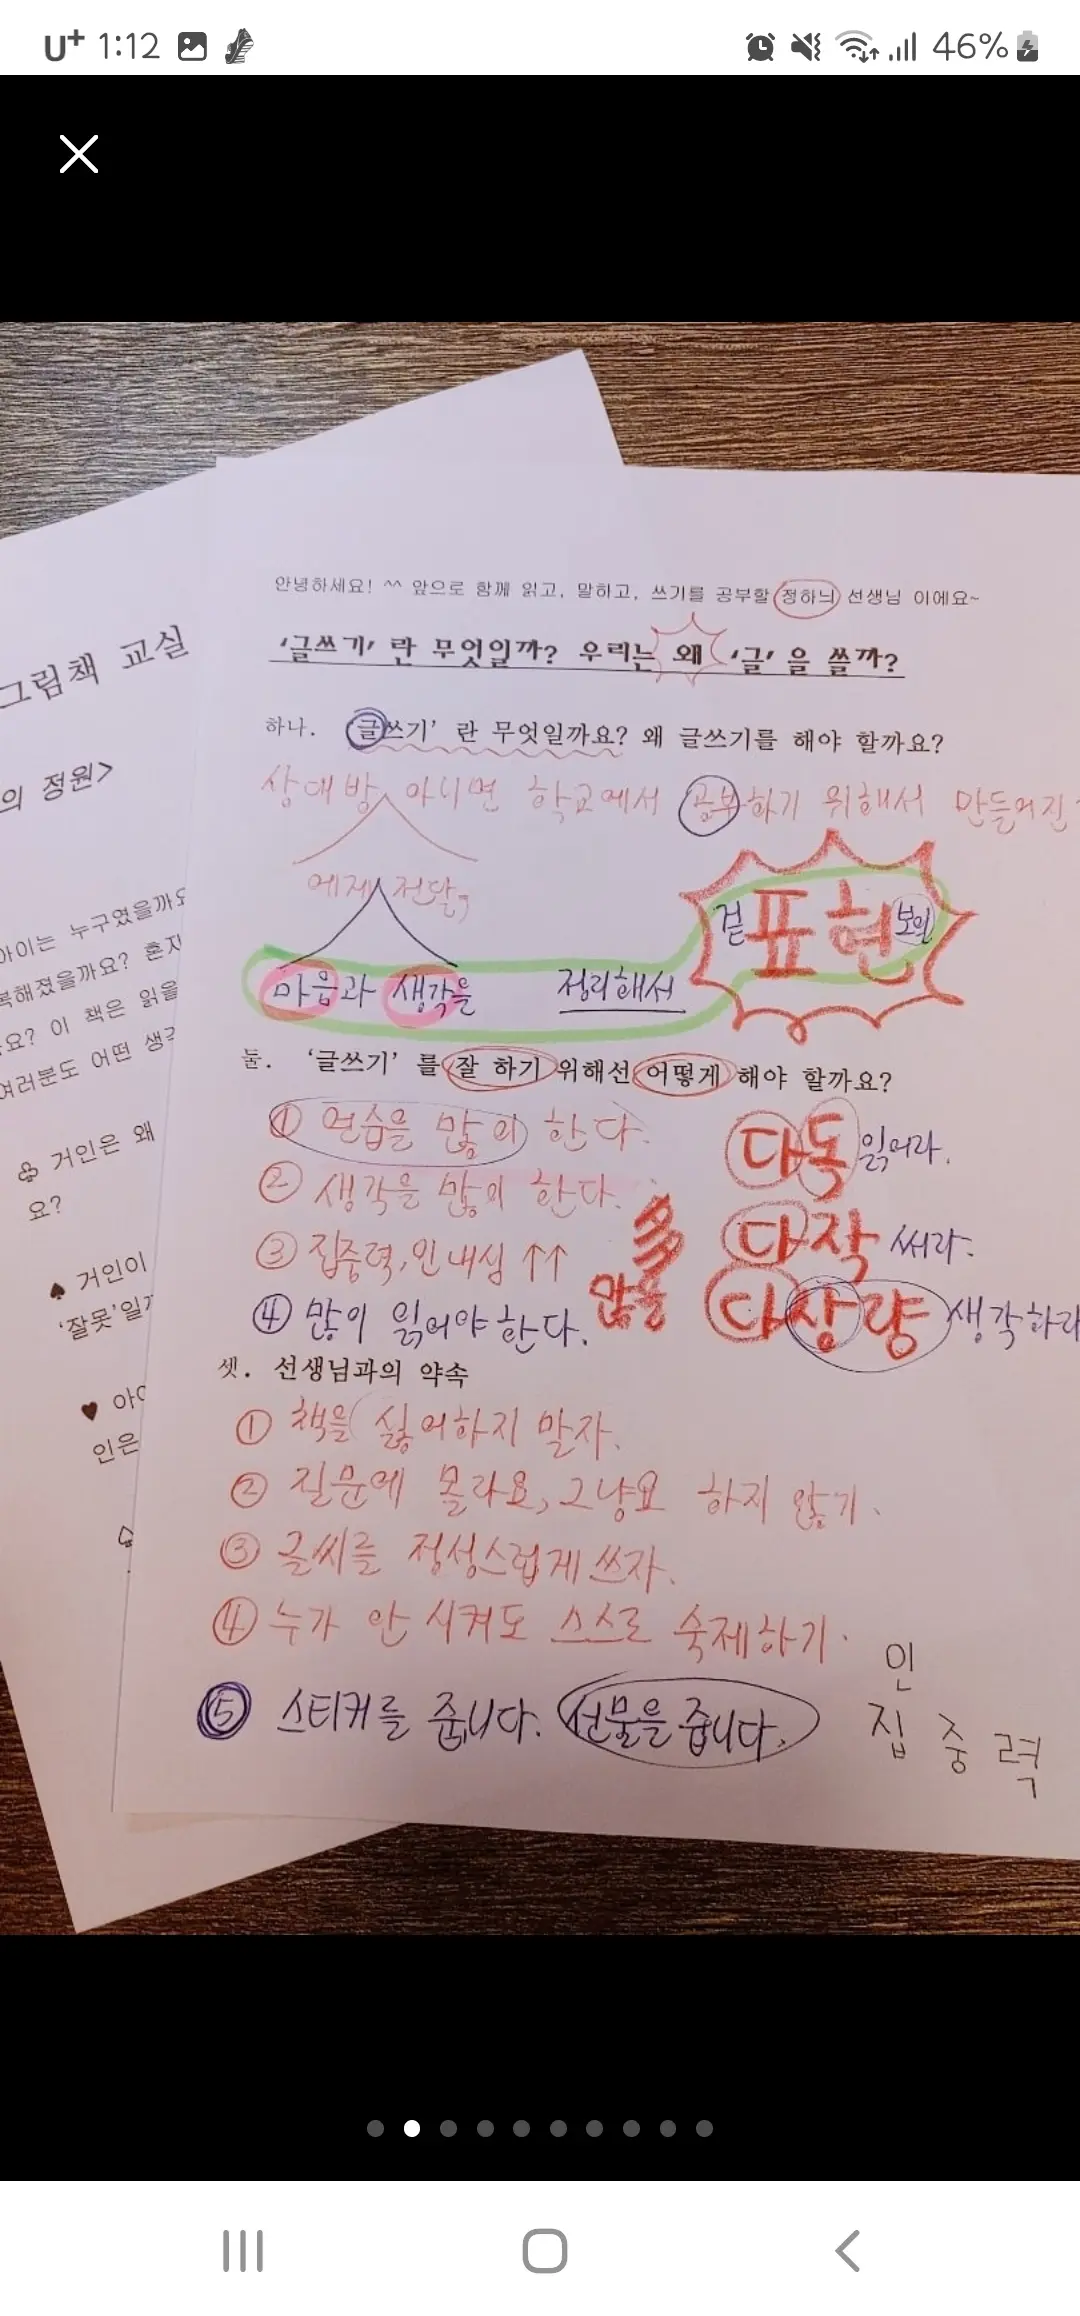 U+ 1:12 46%
그림책 교실
의 정원>
아이는 누구였을까요
복해졌을까요? 혼자
요? 이 책은 읽을
여러분도 어떤 생각
♧ 거인은 왜
요?
♠ 거인이
'잘못'일까
♥ 아이
인은
안녕하세요! ^^ 앞으로 함께 읽고, 말하고, 쓰기를 공부할 정하늬 선생님 이에요~
'글쓰기' 란 무엇일까? 우리는 왜 '글' 을 쓸까?
하나. '글쓰기' 란 무엇일까요? 왜 글쓰기를 해야 할까요?
상대방 아니면 학교에서 공부하기 위해서 만들어진
에게 전달,
겉 표현 보일
마음과 생각을 정리해서
둘. '글쓰기' 를 잘 하기 위해선 어떻게 해야 할까요?
① 연습을 많이 한다. 다독 읽어라.
② 생각을 많이 한다.
多 다작 써라.
③ 집중력, 인내심 ↑↑
많을 다상량 생각하라
④ 많이 읽어야 한다.
셋. 선생님과의 약속
① 책을 싫어하지 말자.
② 질문에 몰라요, 그냥요 하지 않기.
③ 글씨를 정성스럽게 쓰자.
④ 누가 안 시켜도 스스로 숙제하기.
인
⑤ 스티커를 줍니다. 선물을 줍니다.
집 중 력